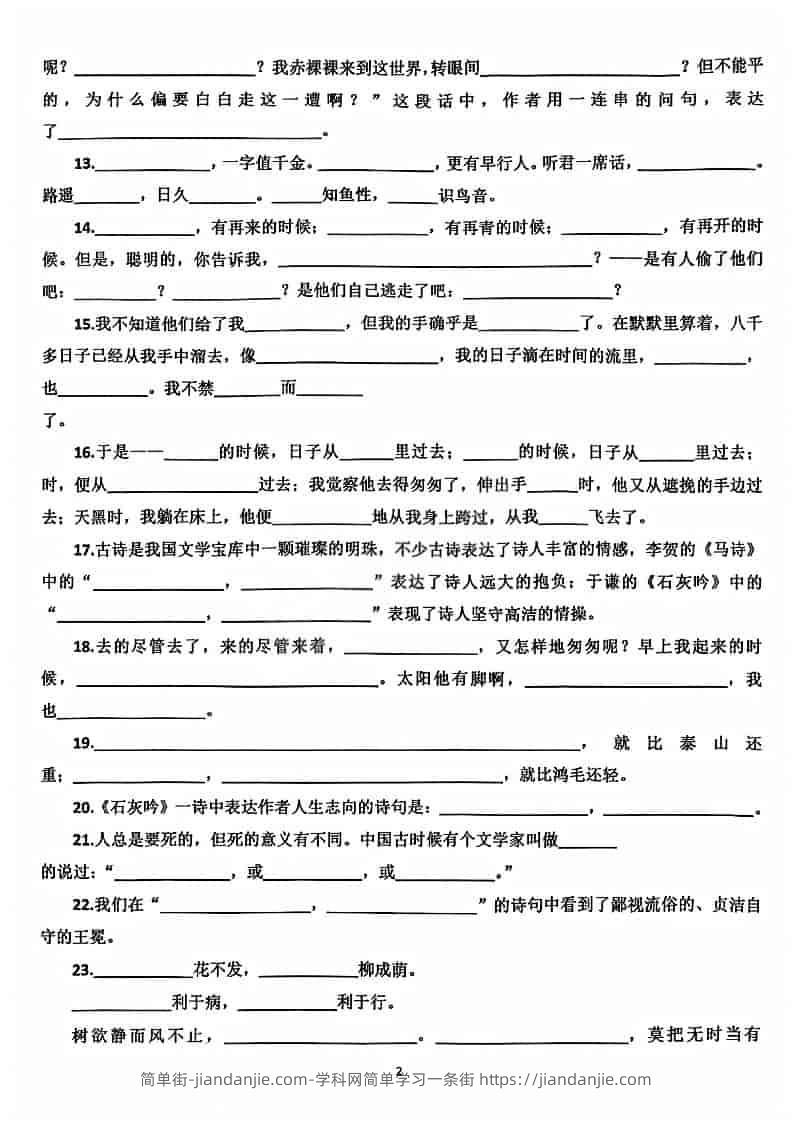 呢？____________________？我赤裸裸来到这世界，转眼间____________________？但不能平
的，为什么偏要白白走这一遭啊？”这段话中，作者用一连串的问句，表达
了____________________________。
13.____________，一字值千金。____________，更有早行人。听君一席话，____________。
路遥_______，日久_______。_____知鱼性，_____识鸟音。
14.__________，有再来的时候；__________，有再青的时候；__________，有再开的时
候。但是，聪明的，你告诉我，________________________________？——是有人偷了他们
吧：________？___________？是他们自己逃走了吧：______________？
15.我不知道他们给了我__________，但我的手确乎是__________了。在默默里算着，八千
多日子已经从我手中溜去，像__________________，我的日子滴在时间的流里，_________，
也_________。我不禁_______而_______
了。
16.于是——______的时候，日子从______里过去；______的时候，日子从______里过去；
时，便从________________过去；我觉察他去得匆匆了，伸出手_____时，他又从遮挽的手边过
去；天黑时，我躺在床上，他便__________地从我身上跨过，从我_____飞去了。
17.古诗是我国文学宝库中一颗璀璨的明珠，不少古诗表达了诗人丰富的情感，李贺的《马诗》
中的“______________，______________”表达了诗人远大的抱负；于谦的《石灰吟》中的
“________________，________________”表现了诗人坚守高洁的情操。
18.去的尽管去了，来的尽管来着，______________，又怎样地匆匆呢？早上我起来的时
候，______________________________。太阳他有脚啊，____________________，我
也________________。
19.__________________________________________________，就比泰山还
重；_____________，____________________________，就比鸿毛还轻。
20.《石灰吟》一诗中表达作者人生志向的诗句是：________________，________________。
21.人总是要死的，但死的意义有不同。中国古时候有个文学家叫做______
的说过：“____________，或__________，或__________。”
22.我们在“________________，________________”的诗句中看到了鄙视流俗的、贞洁自
守的王冕。
23.__________花不发，__________柳成荫。
__________利于病，__________利于行。
树欲静而风不止，____________________。____________________，莫把无时当有
2
简单街-jiandanjie.com-学科网简单学习一条街 https://jiandanjie.com